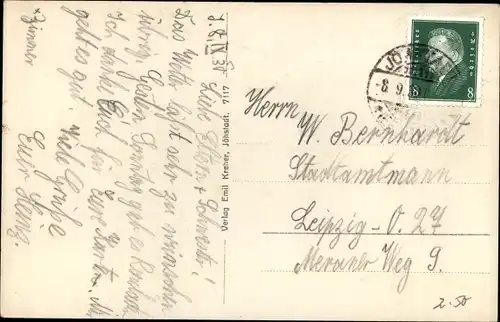 J. 8. IX. 31
Liebe Eltern + Schwester!
Das Wetter läßt sehr zu wünschen
übrig. Gestern Sonntag gab es
Ich danke Euch für Eure Karten. Mir
geht es gut. Viele Grüße
Euer Heinz.
* Zimmer
Verlag Emil Krener, Jöhstadt. 7117
JÖHSTADT
-8.9.
8 8
Herrn
W. Bernhardt
Stadtamtmann
Leipzig - O. 27
Meraner Weg 9.
2.50